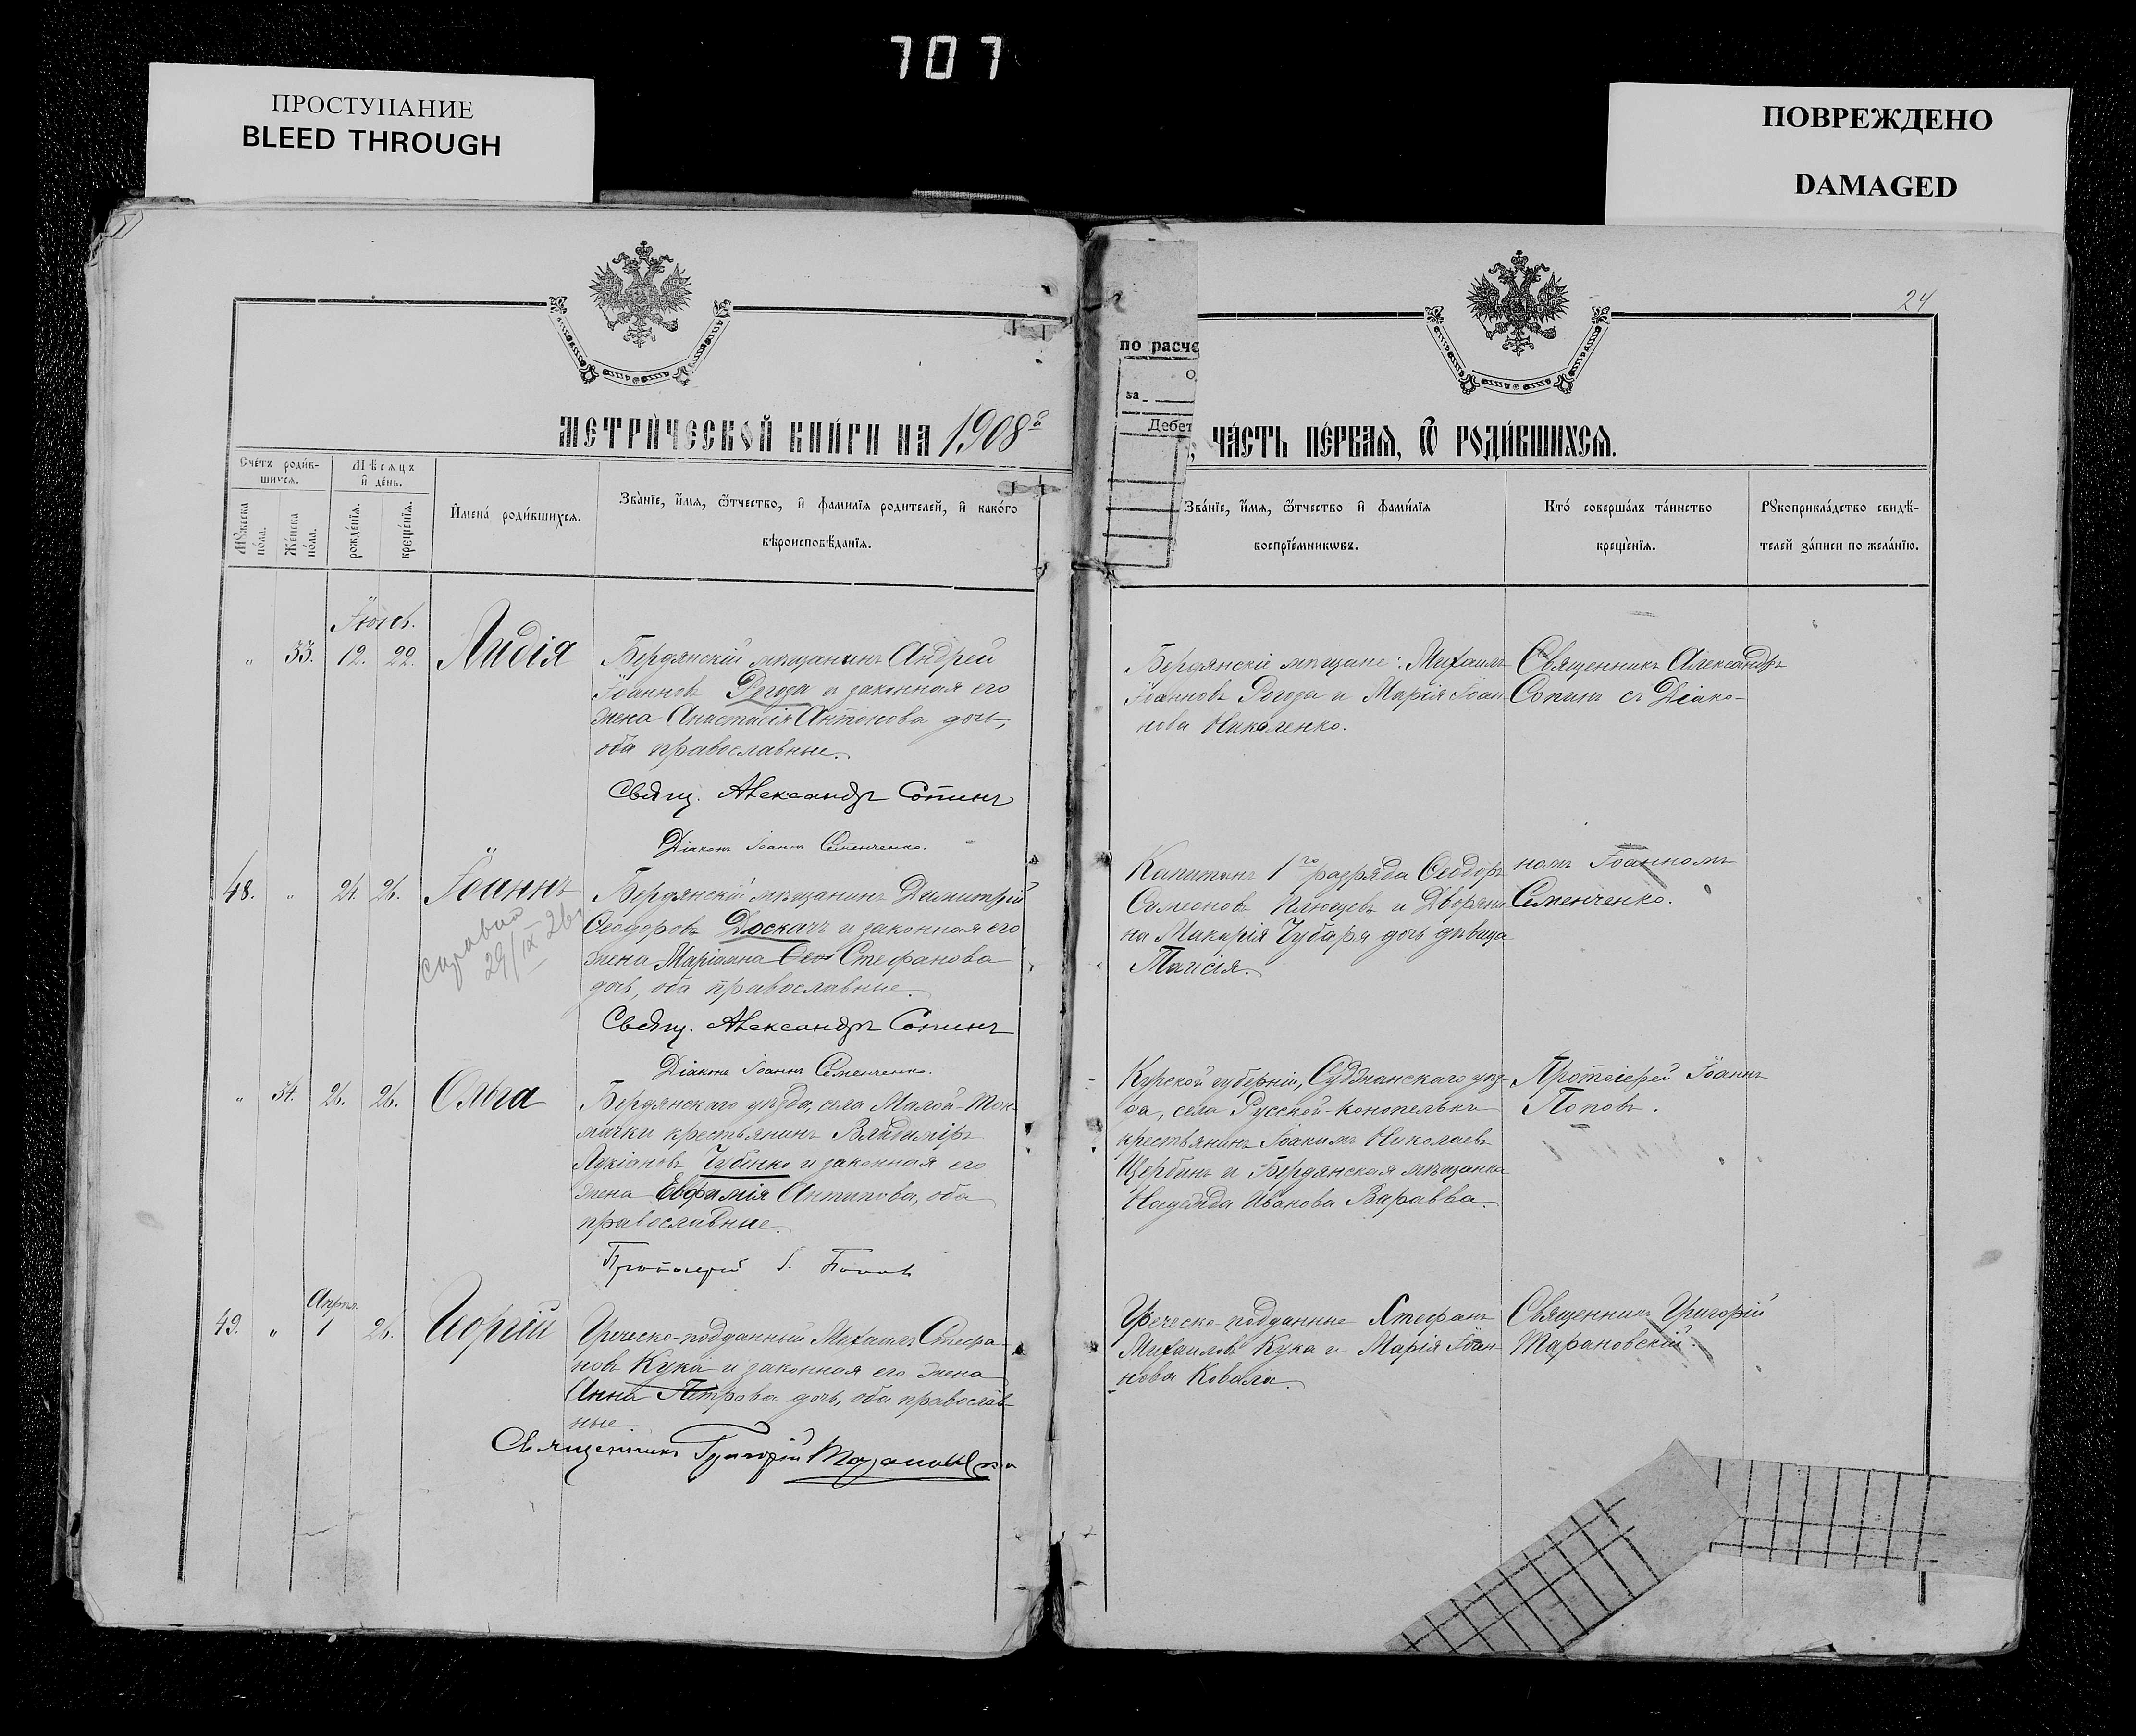 707
ПРОСТУПАНИЕ
BLEED THROUGH
ПОВРЕЖДЕНО
DAMAGED
24
МЕТРИ́ЧЕСКОЙ КНИ́ГИ НА 1908й
по расче
О
за
Дебет
ЧА́СТЬ ПЕ́РВАѦ, Ѿ РОДИ́ВШИХСѦ.
Сче́тъ роди́в-
шихсѧ.
Мѣ́сѧцъ
и҆ де́нь.
Мꙋ́жеска
по́ла.
Же́нска
по́ла.
рожде́нїѧ.
креще́нїѧ.
И҆мена̀ роди́вшихсѧ.
Зва́нїе, и҆́мѧ, ѻ҆́тчество, и҆ фами́лїѧ родителей, и҆ како́го
вѣроисповѣ́данїѧ.
Зва́нїе, и҆́мѧ, ѻ҆́тчество и҆ фами́лїѧ
воспрїе́мникѡвъ.
Кто̀ соверша́лъ та́инство
креще́нїѧ.
Рꙋкоприкла́дство свидѣ́-
телей за́писи по жела́нїю.
" 33. 12. 22. Лидія
Бердянскій мѣщанинъ Андрей
Іоанновъ Регода и законная его
жена Анастасія Антонова дочь,
оба православные.
Свящ. Александръ Сопинъ
Діаконъ Іоаннъ Семенченко.
Бердянскіе мѣщане: Михаилъ
Іоанновъ Регода и Марія Іоан-
нова Николенко.
Священникъ Александръ
Сопинъ съ Діако-
номъ Іоанномъ
Семенченко.
48. " 24. 26. Іоаннъ
справка
29/IX 26
Бердянскій мѣщанинъ Димитрій
Ѳеодоровъ Доскачъ и законная его
жена Маріамна Стефанова
дочь, оба православные.
Свящ. Александръ Сопинъ
Діаконъ Іоаннъ Семенченко.
Капитанъ 1го разряда Ѳеодоръ
Симеоновъ и Дворяни-
на Макарія Чубаря дочь дѣвица
Таисія.
" 34. 26. 26. Ольга
Бердянскаго уѣзда, села Малой-Ток-
мачки крестьянинъ Владиміръ
Лукіановъ Чубенко и законная его
жена Евфимія Антипова, оба
православные.
Протоіерей І. Поповъ
Курской губерніи, Суджанскаго уѣз-
да, села Русской-Конопельки
крестьянинъ Іоакимъ Николаевъ
Щербинъ и Бердянская мѣщанка
Надежда Иванова Варавва.
Протоіерей Іоаннъ
Поповъ.
Апрѣл.
49. " 1 26. Георгій
Греческо-подданный Михаилъ Стефа-
новъ Кука и законная его жена
Анна Петрова дочь, оба православ-
ные
Священникъ Григорій Тарановскій
Греческо-подданные Стефанъ
Михаиловъ Кука и Марія Іоан-
нова Ковала.
Священникъ Григорій
Тарановскій.